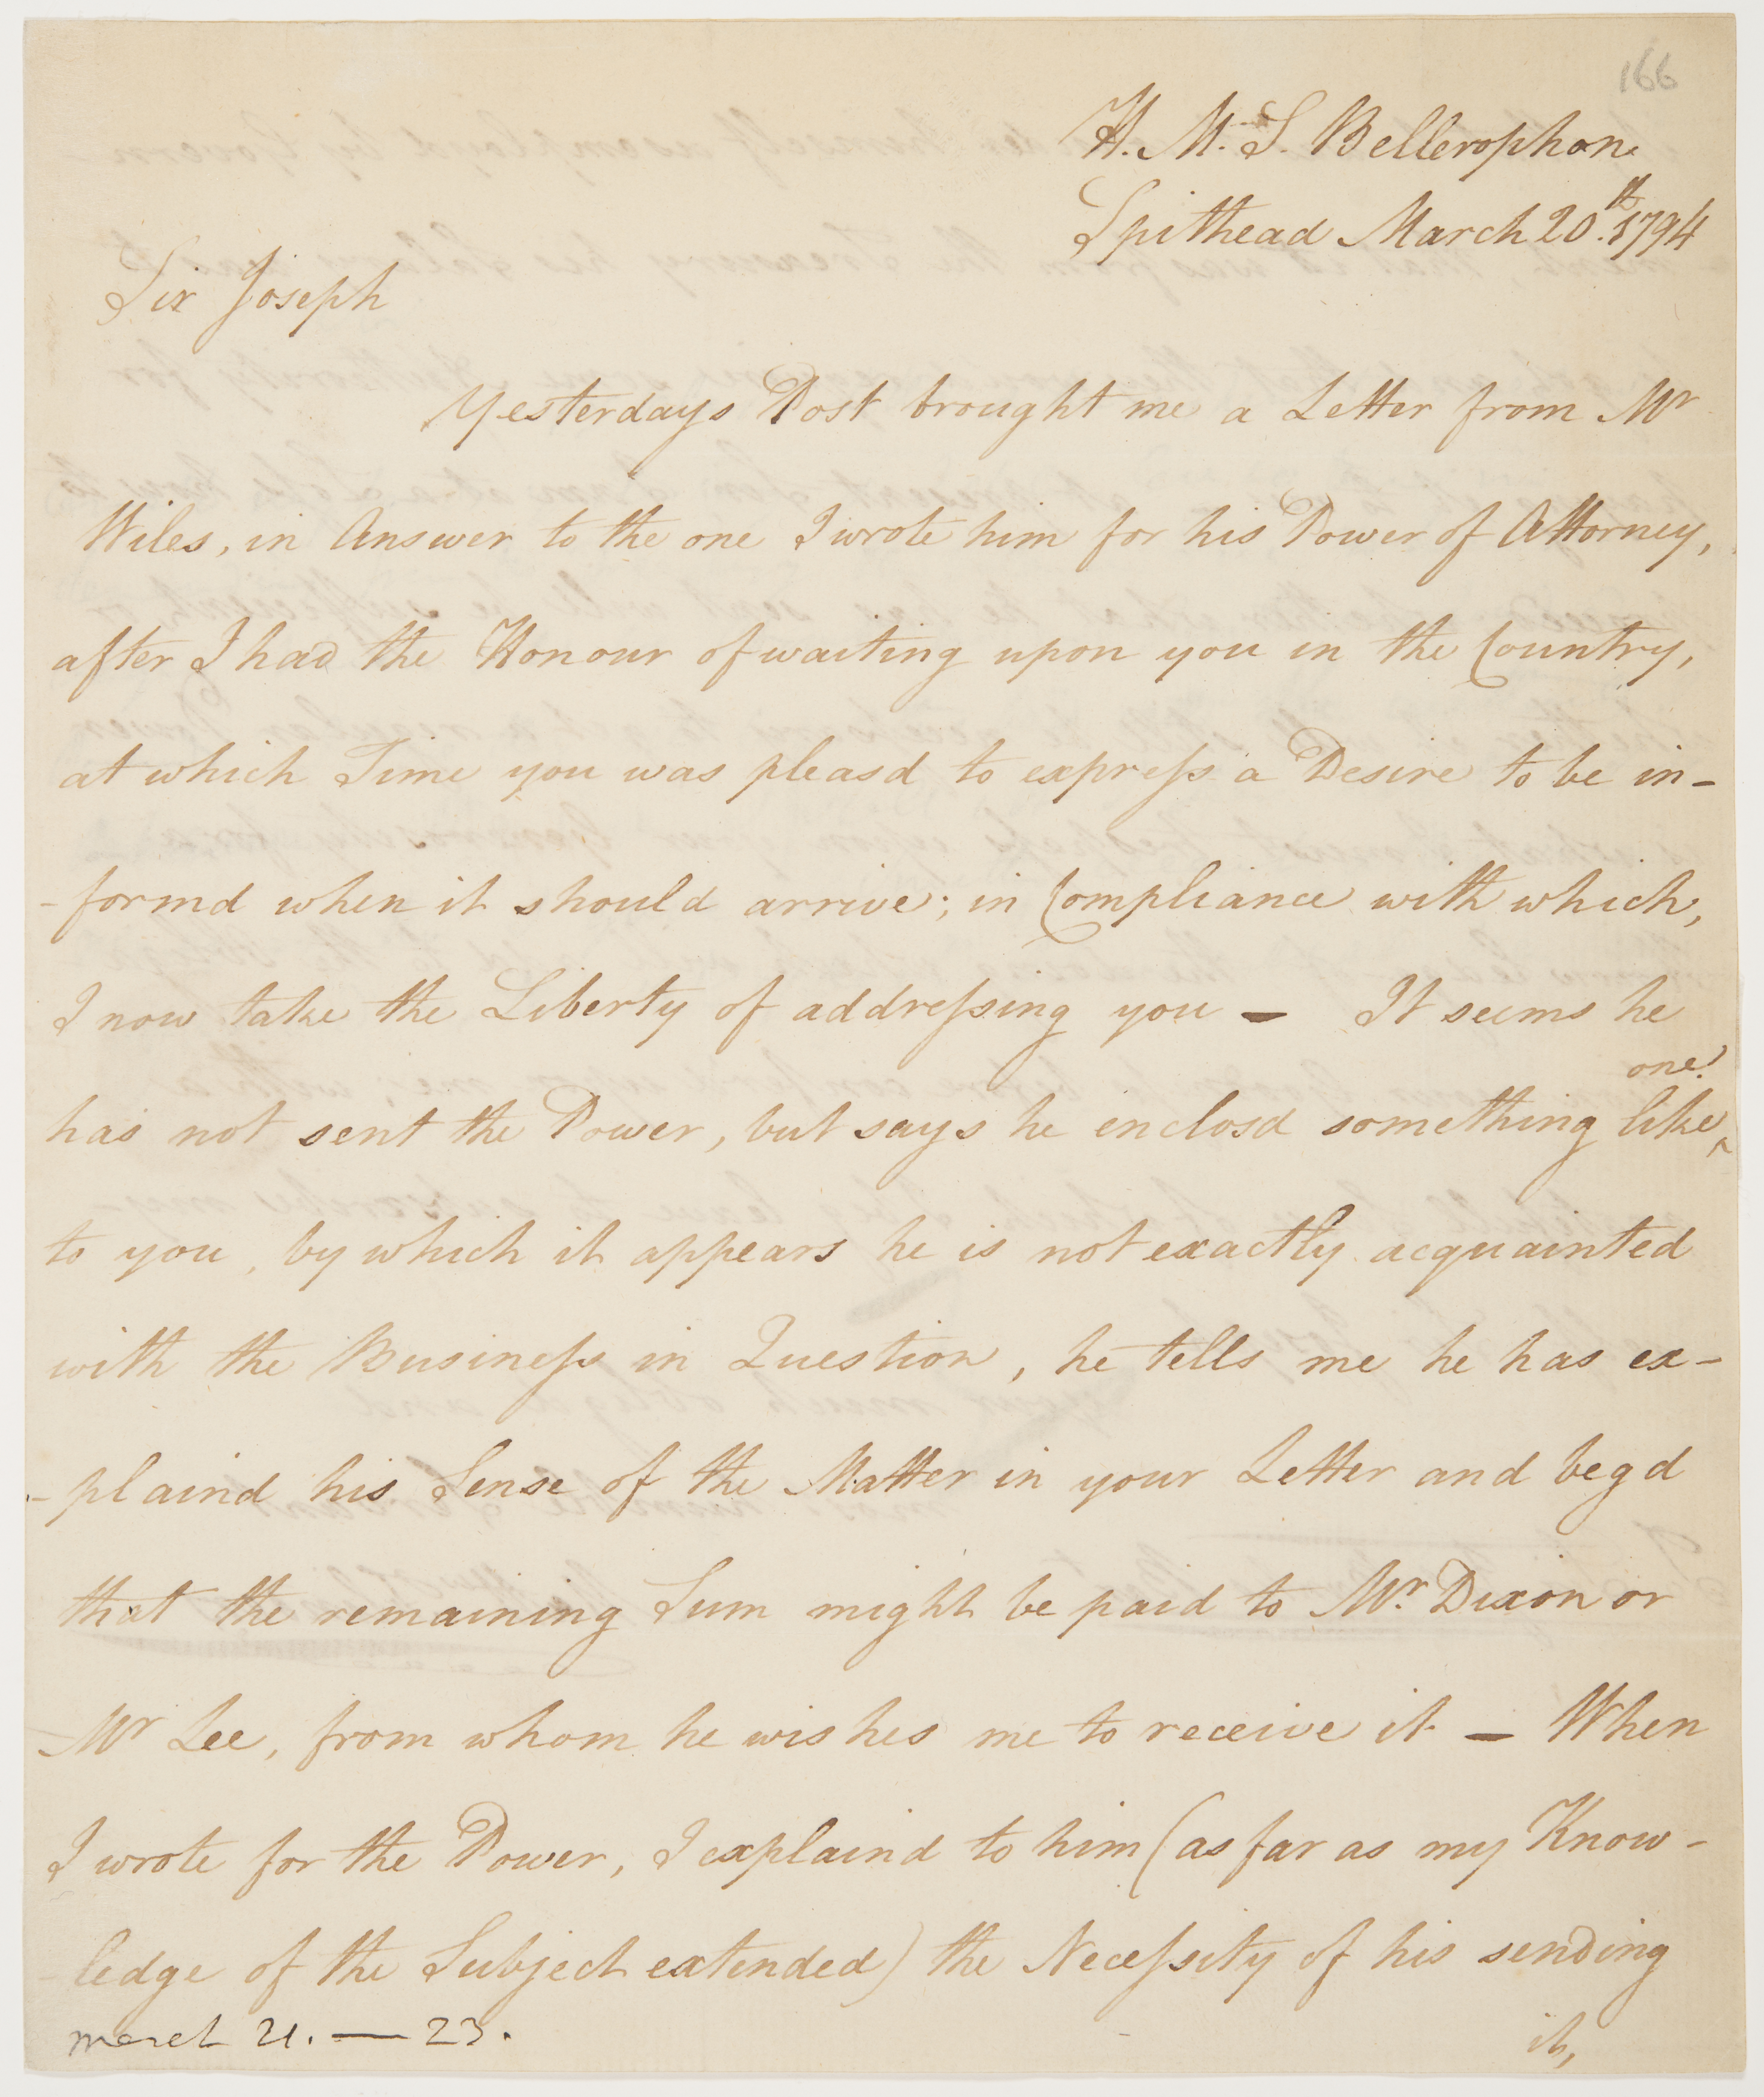 166
H. M. S. Bellerophon.
Spithead March 20th. 1794
Sir Joseph
Yesterdays Post brought me a Letter from Mr
Wiles, in Answer to the one I wrote him for his Power of Attorney,
after I had the Honour of waiting upon you in the Country,
at which Time you was pleasd to expreſs a Desire to be in-
-formd when it should arrive; in Compliance with which,
I now take the Liberty of addreſsing you - It seems he
has not sent the Power, but says he enclosd something like ^one
to you, by which it appears he is not exactly acquainted
with the Buisineſs in Question, he tells me he has ex-
-plaind his Sense of the Matter in your Letter and begd
that the remaining Sum might be paid to Mr. Dixon or
Mr Lee, from whom he wishes me to receive it - When
I wrote for the Power, I explaind to him (as far as my Know-
-ledge of the Subject extended) the Neceſsity of his sending
it,
march 21. — 23.